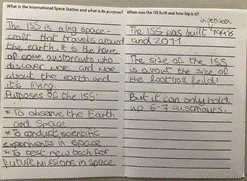 What is the International Space Station and what is its purpose?
The ISS is a big space-
craft that travels around
the earth. It is the home
of some austronauts who
discover more and more
about the earth and
it's living.
Purposes of the ISS:
* To observe the Earth
and Space
* To conduct scientific
experiments in space
* To test new tech for
future missions in space
When was the ISS built and how big is it?
in between
The ISS was built 1998
and 2011
The size of the ISS
is about the size of
the football field!
But it can only hold
up 6-7 austronauts.